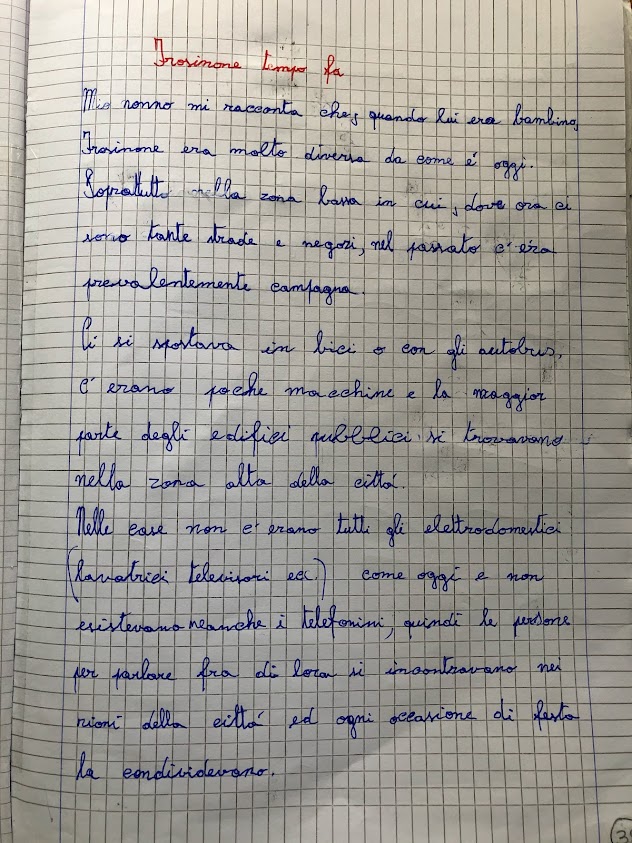 Frosinone tempo fa
Mio nonno mi racconta che, quando lui era bambino,
Frosinone era molto diversa da come é oggi.
Soprattutto nella zona bassa in cui, dove ora ci
sono tante strade e negozi, nel passato c'era
prevalentemente campagna.
Ci si spostava in bici o con gli autobus,
c'erano poche macchine e la maggior
parte degli edifici pubblici si trovavano
nella zona alta della cittá.
Nelle case non c'erano tutti gli elettrodomestici
(lavatrici televisori ecc.) come oggi e non
esistevano neanche i telefonini, quindi le persone
per parlare fra di loro si incontravano nei
rioni della cittá ed ogni occasione di festa
la condividevano.